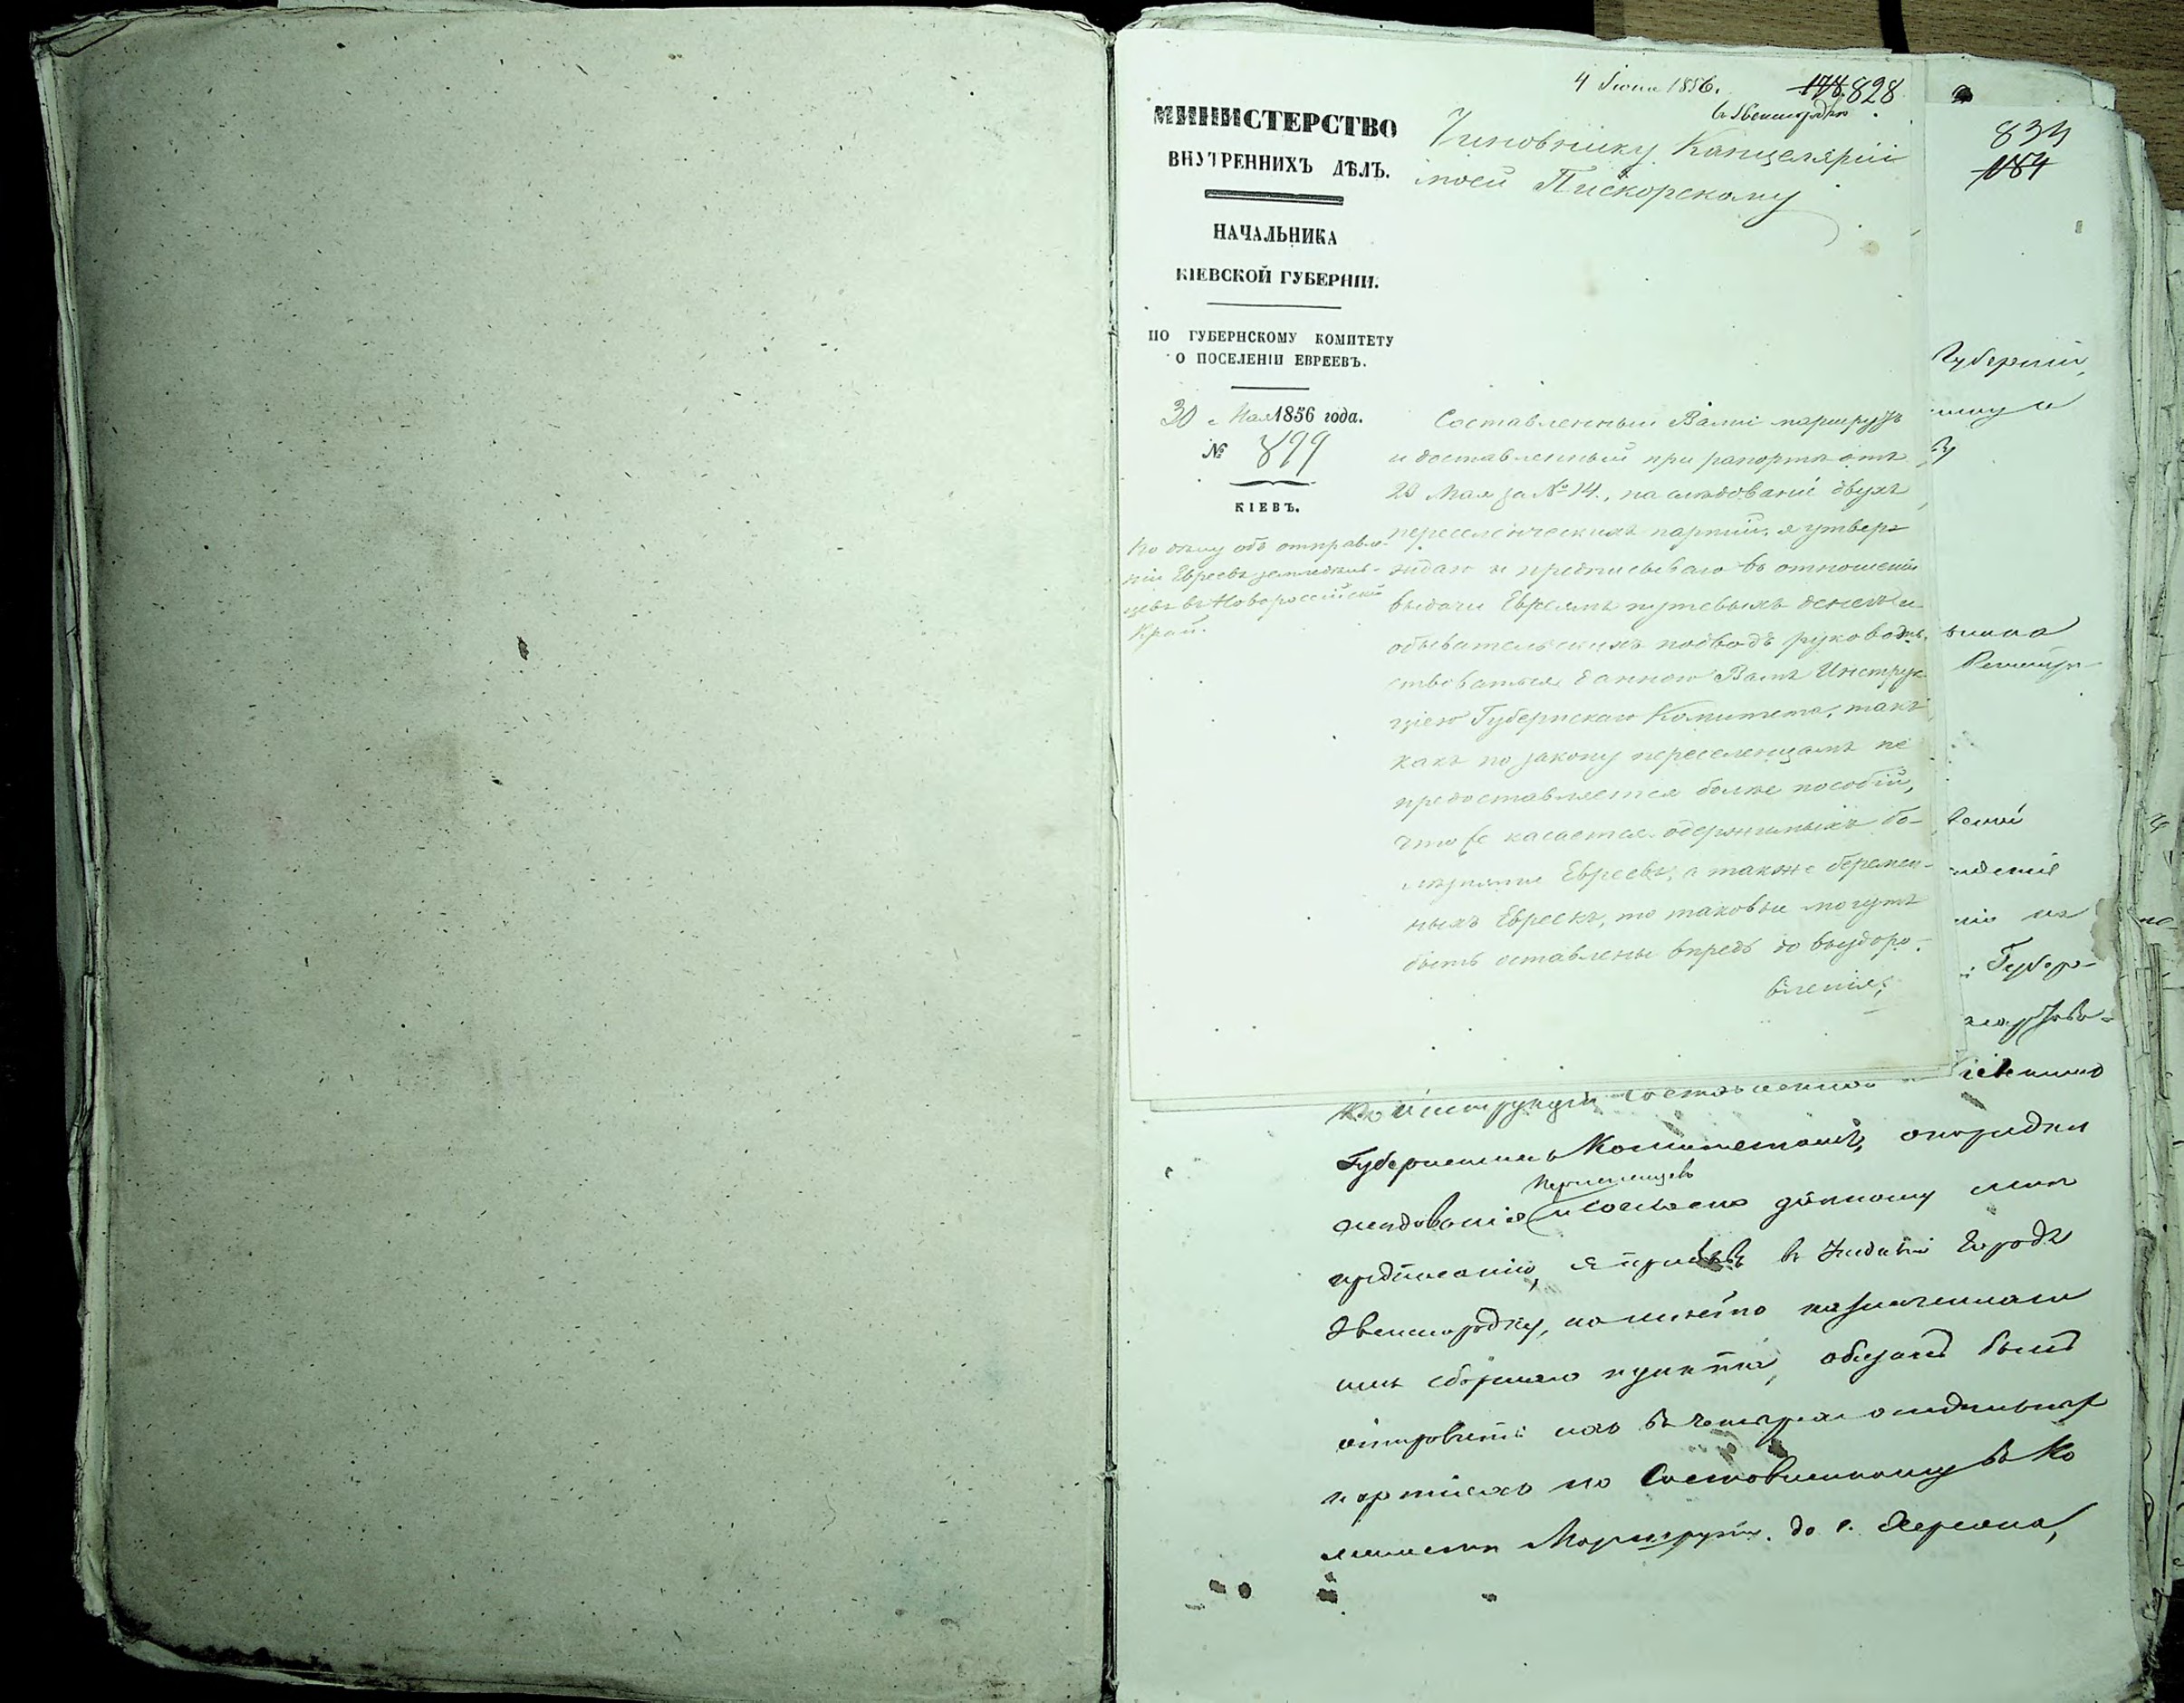 4 Июня 1856.
178. 828
в Звенигородке.
МИНИСТЕРСТВО
ВНУТРЕННИХЪ ДѢЛЪ.
НАЧАЛЬНИКА
КІЕВСКОЙ ГУБЕРНІИ.
ПО ГУБЕРНСКОМУ КОМИТЕТУ
О ПОСЕЛЕНІИ ЕВРЕЕВЪ.
30 Мая 1856 года.
№ 899
КІЕВЪ.
По дѣлу объ отправле-
ніи Евреевъ земледѣль-
цевъ въ Новороссійскій
Край.
Чиновнику Канцеляріи
моей Пискорскому
Составленный Вами маршрутъ
и доставленный при рапортѣ отъ
20 Мая за № 14., на слѣдованіе двухъ
переселенческихъ партій, я утверж-
ждаю и предписываю въ отношеніи
выдачи Евреямъ путевыхъ денегъ и
обывательскихъ подводъ руковод-
ствоваться данною Вамъ Инструк-
ціею Губернскаго Комитета, такъ
какъ по закону переселенцамъ не
предоставляется болѣе пособій,
что же касается одержимыхъ бо-
лѣзнями Евреевъ, а также беремен-
ныхъ Евреекъ, то таковые могутъ
быть оставлены впредь до выздоро-
вленія;
834
184
Губерніи,
Губер-
По Инструкціи составленной
Губернскимъ Комитетомъ, о порядкѣ
переселенцевъ
слѣдованія и согласно данному мнѣ
предписанію, я прибывъ въ Уѣздный Городъ
Звенигородку, на мѣсто назначеннаго
имъ сборнаго пункта, обязанъ былъ
отправить ихъ въ четырехъ отдѣльныхъ
партіяхъ по Составленному въ Ко
митетѣ Маршруту до г. Херсона,